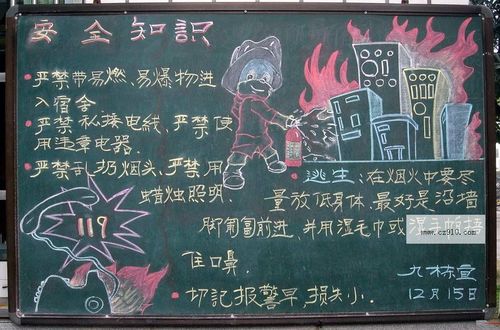 安全知識
·严禁带易燃、易爆物进
入宿舍
·严禁私接电線、严禁使
用违章电器.
·严禁乱扔烟头、严禁用
蜡烛照明.
119
·逃生:在烟火中要尽
量放低身体.最好是沿墙
脚匍匐前进、并用湿毛巾或湿手帕捂
住口鼻.
www.cz910.com
·切記报警早,损失小.
九栋宣
12月15日